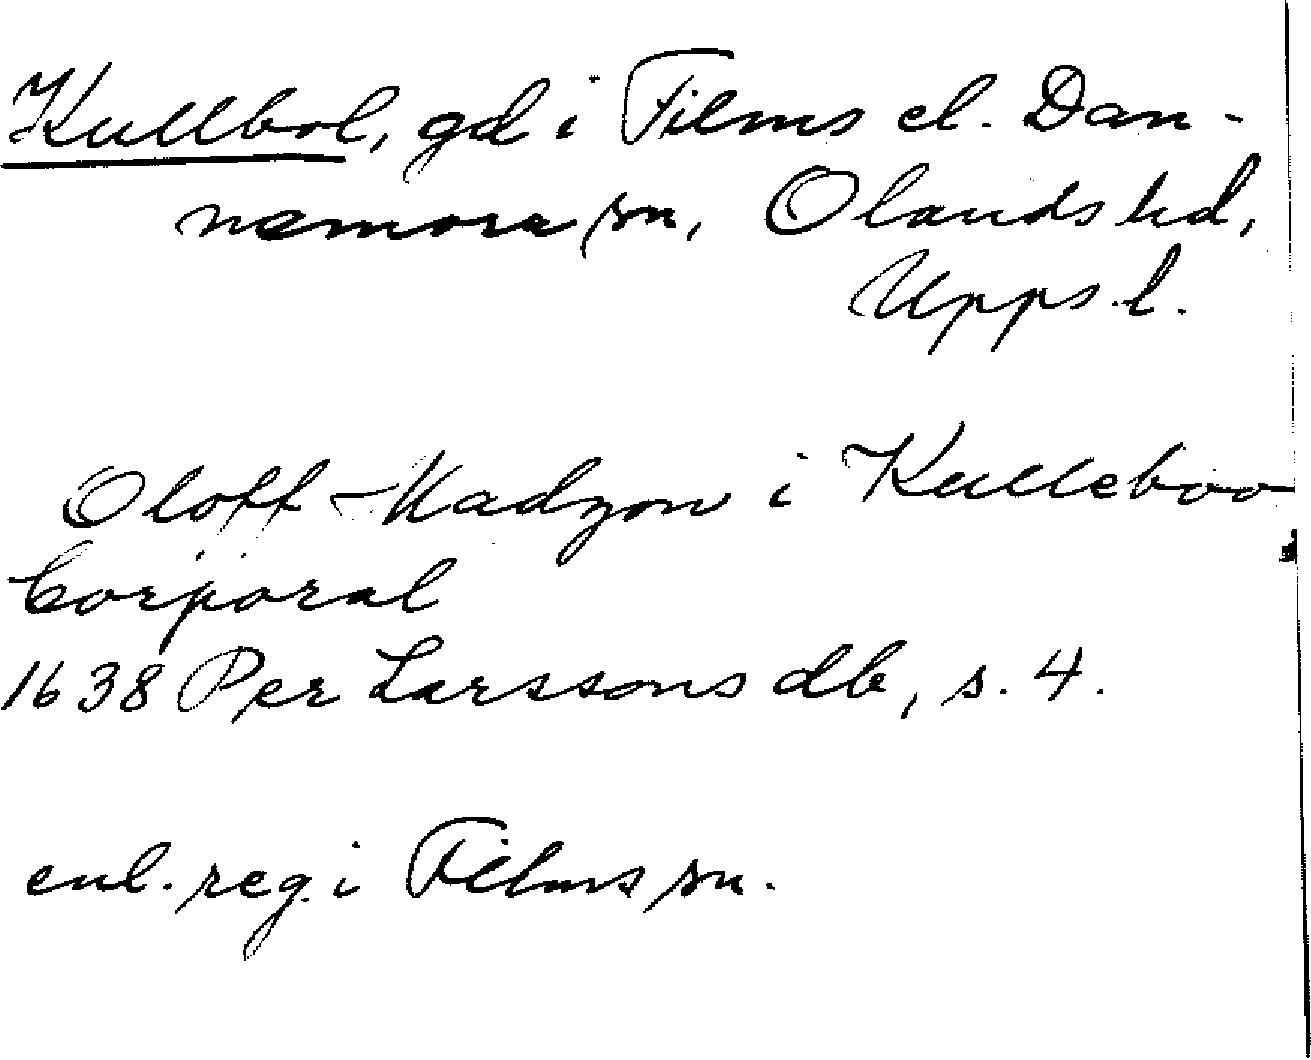 Kullbol, gd i Films el. Dan-
nemora sn, Olands hd,
Upps. l.
Oloff Madzon i Kulleboo
Corporal
1638 Per Larssons db, s. 4.
enl. reg. i Films sn.